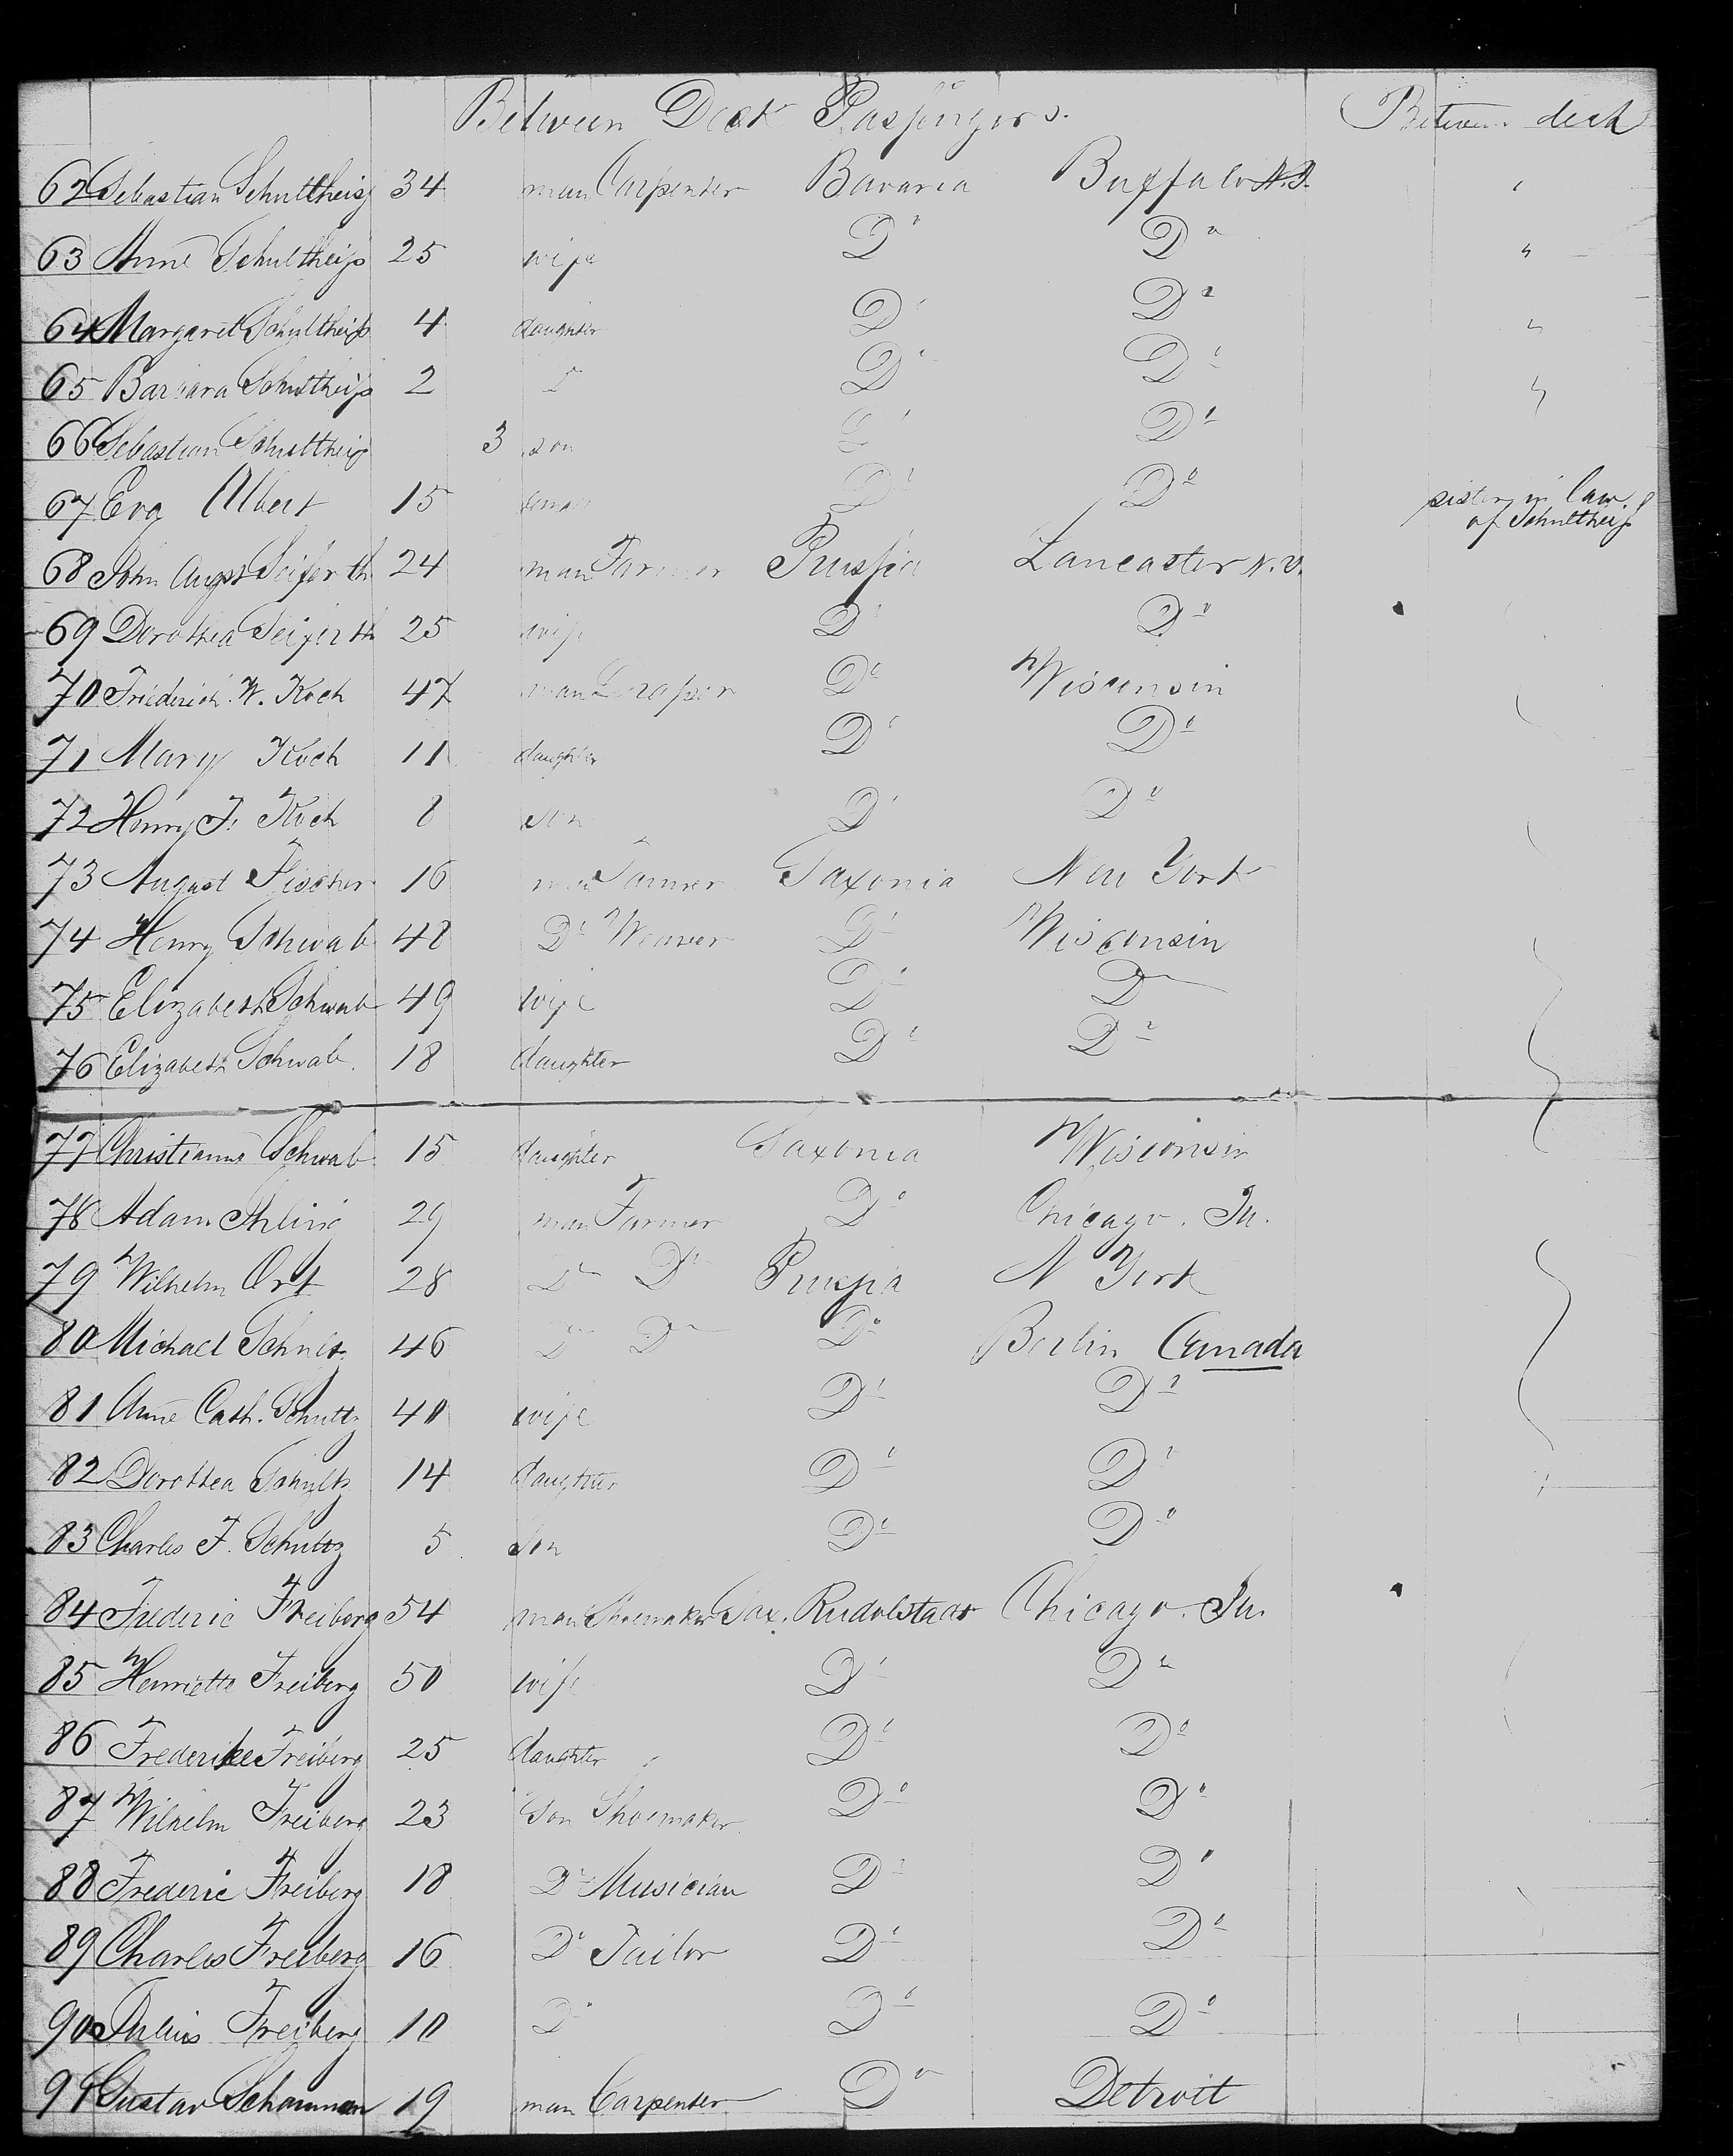 Between Deck Passengers. Between deck
62 Sebastian Schultheiss 34 man Carpenter Bavaria Buffalo N.Y. "
63 Anne Schultheiss 25 wife Do Do "
64 Margaret Schultheiss 4 daughter Do Do "
65 Barbara Schultheiss 2 D Do Do "
66 Sebastian Schultheiss 3 son Do Do
67 Eva Albert 15 Do Do sister in law of Schultheiss
68 John Augst Seiferth 24 man Farmer Prussia Lancaster N.Y.
69 Dorothea Seiferth 25 wife Do Do
70 Friederich W. Koch 47 man Do Wisconsin
71 Mary Koch 11 daughter Do Do
72 Henry F. Koch 8 son Do Do
73 August Fischer 16 man Saxonia New York
74 Henry Schwab 48 Do Weaver Do Wisconsin
75 Elizabeth Schwab 49 wife Do Do
76 Elizabeth Schwab 18 daughter Do Do
77 Christianne Schwab 15 daughter Saxonia Wisconsin
78 Adam 29 man Farmer Do Chicago.
79 Wilhelm Ort 28 Do Do Prussia N York
80 Michael Schultz 46 Do Do Do Berlin Canada
81 Anne Cath. Schultz 40 wife Do Do
82 Dorothea Schultz 14 daughter Do Do
83 Charles F. Schultz 5 son Do Do
84 Frederic Freiberg 54 man Shoemaker Sax. Rudolstadt Chicago.
85 Henriette Freiberg 50 wife Do Do
86 Frederike Freiberg 25 daughter Do Do
87 Wilhelm Freiberg 23 Son Shoemaker Do Do
88 Frederic Freiberg 18 Do Musician Do Do
89 Charles Freiberg 16 Do Tailor Do Do
90 Julius Freiberg 10 Do Do Do
91 Gustav Schammen 19 man Carpenter Do Detroit